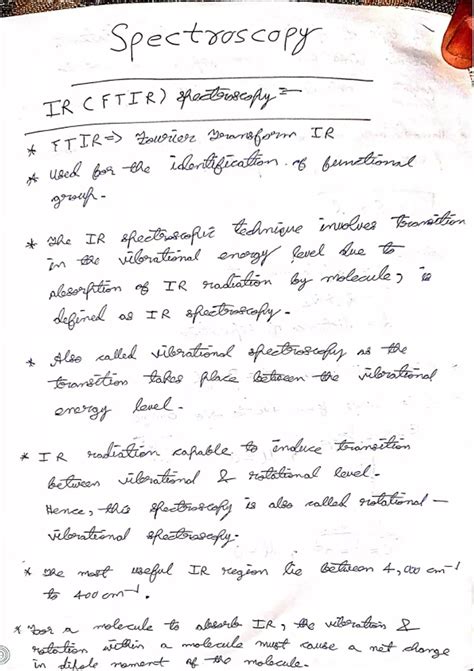 Spectroscopy
IR (FTIR) spectroscopy =
* FTIR => Fourier Transform IR
* Used for the identification of functional
group.
* The IR spectroscopic technique involves transition
in the vibrational energy level due to
absorption of IR radiation by molecule, is
defined as IR spectroscopy.
* Also called vibrational spectroscopy as the
transition takes place between the vibrational
energy level.
* IR radiation capable to induce transition
between vibrational & rotational level.
Hence, this spectroscopy is also called rotational -
vibrational spectroscopy.
* The most useful IR region lie between 4,000 cm⁻¹
to 400 cm⁻¹.
* For a molecule to absorb IR, the vibration &
rotation within a molecule must cause a net change
in dipole moment of the molecule.